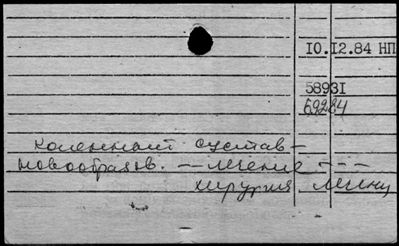 10.12.84 НП
58931
69284
коленный сустав -
новообразов. - лечение - - -
хирургия